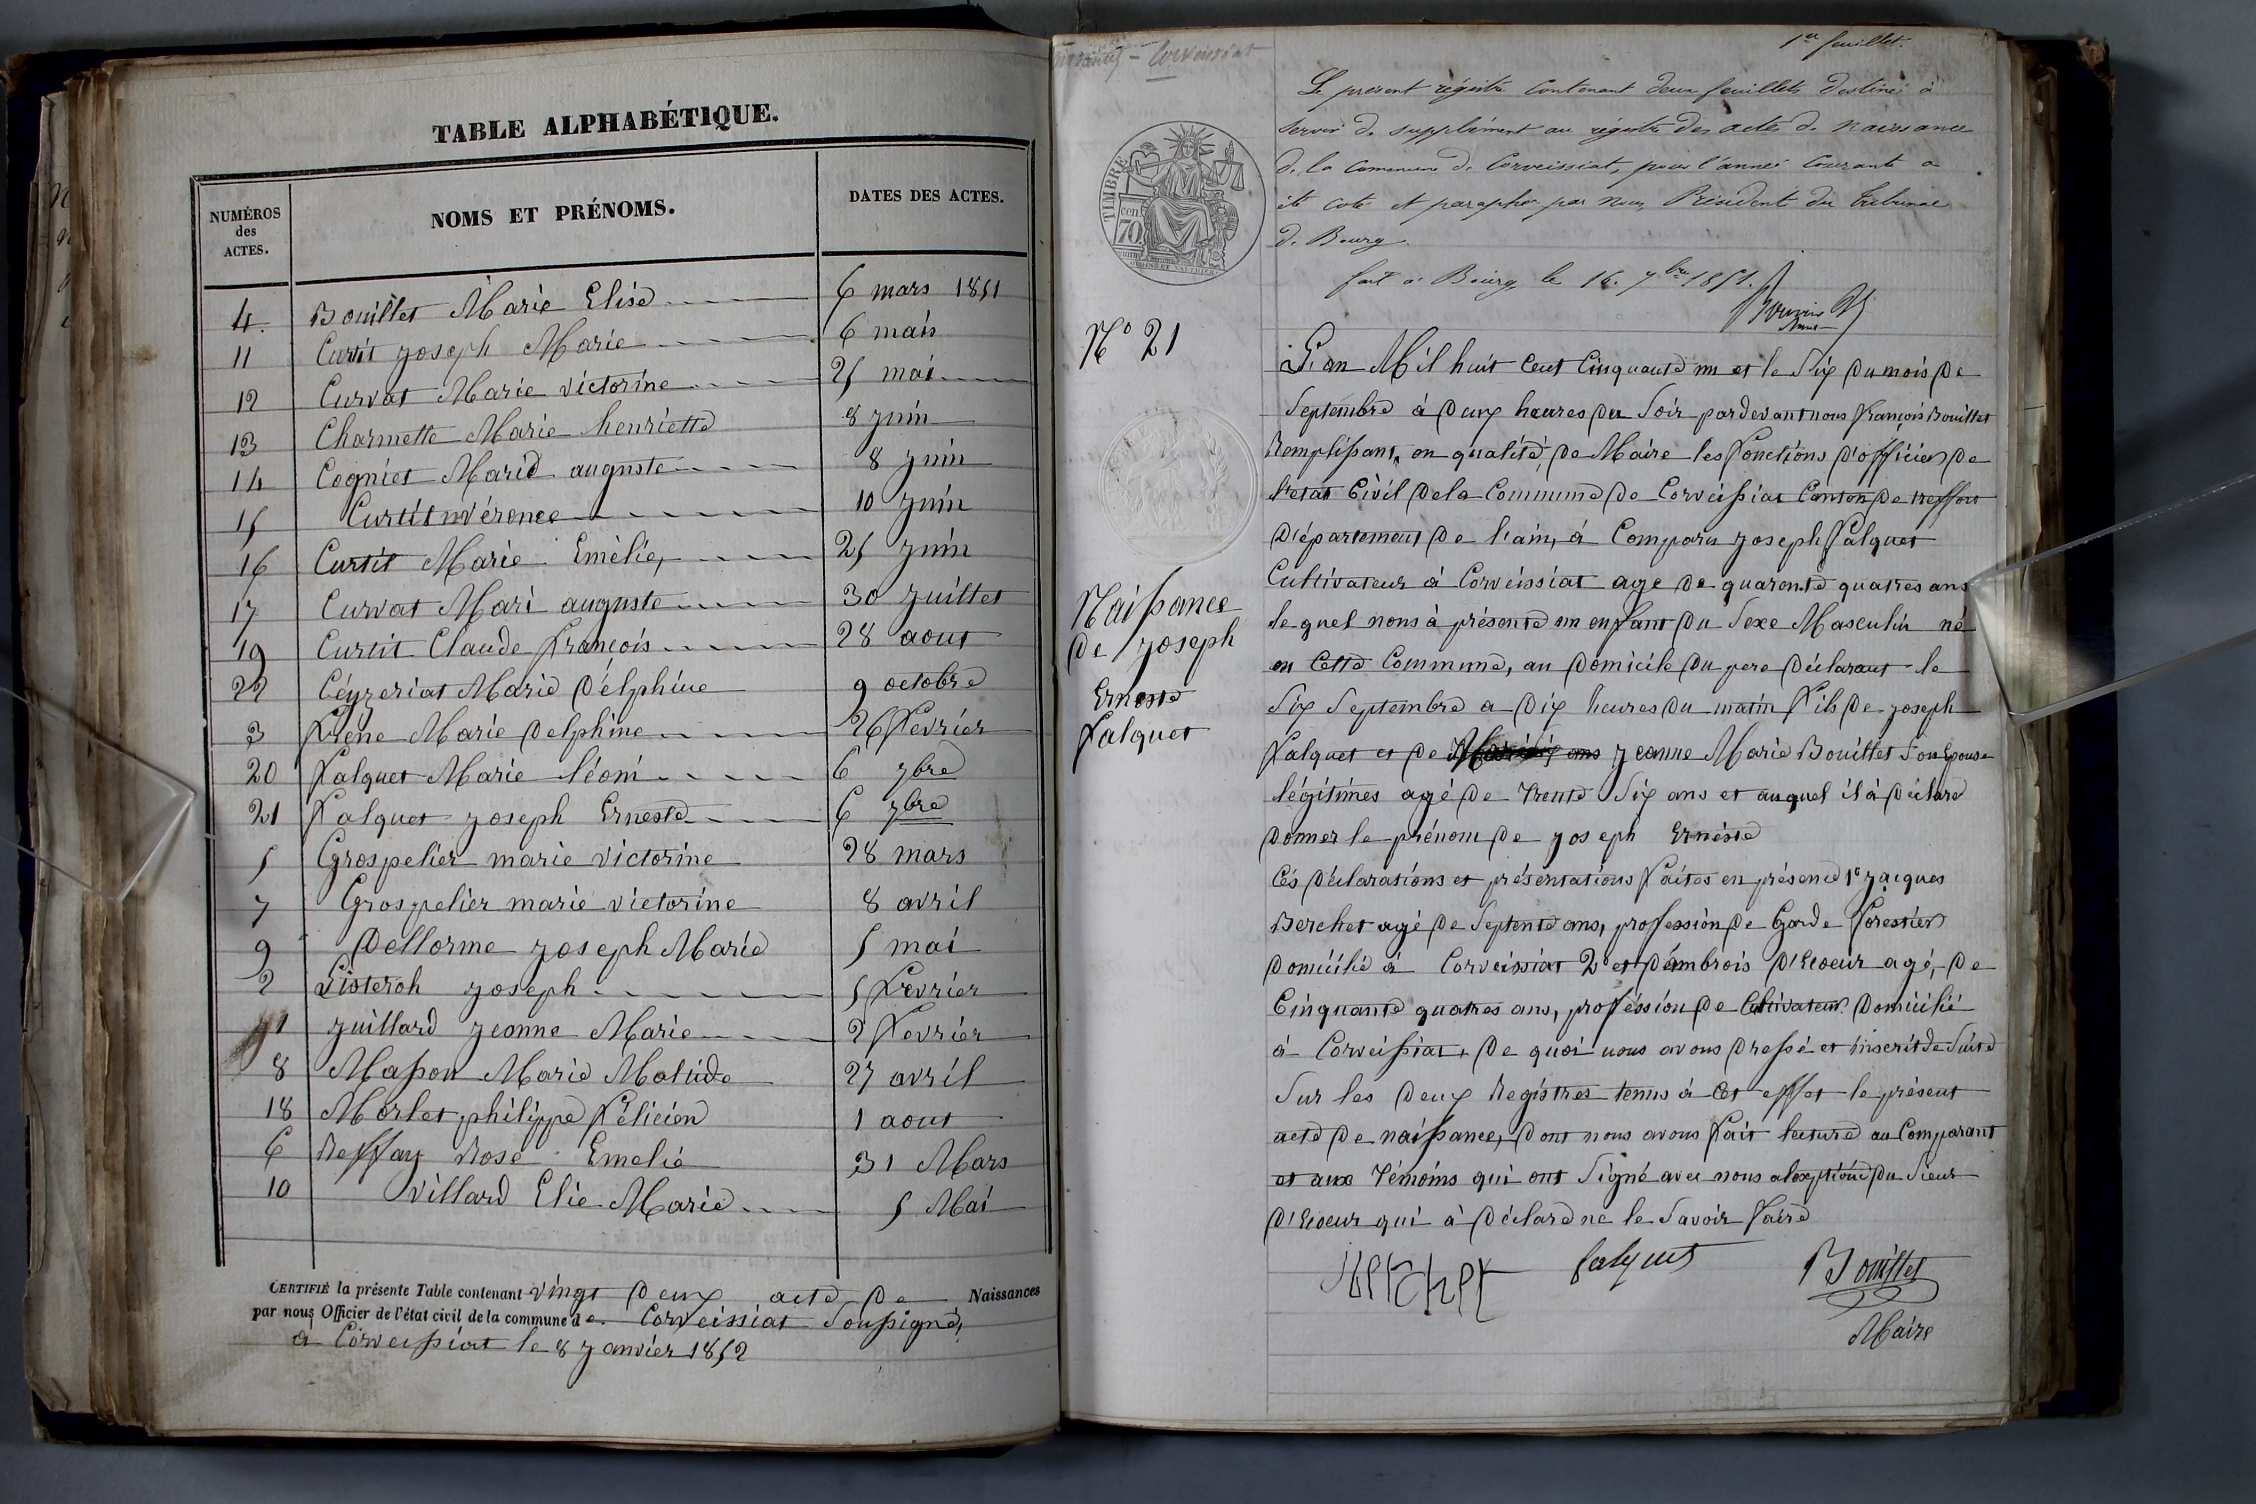 TABLE ALPHABÉTIQUE.
NUMÉROS des ACTES. NOMS ET PRÉNOMS. DATES DES ACTES.
4. Bouillet Marie Elise 6 mars 1851
11 Curtit joseph Marie 6 mais
12 Curvat Marie victorine 25 mai
13 Charmette Marie henriette 8 juin
14 Cogniet Marie auguste 8 juin
15 Curtit véronce 10 juin
16 Curtit Marie Emèlie, 25 juin
17 Curvat Mari auguste 30 juillet
19 Curtit Claude François 28 aout
22 Céyzeriat Marie Délphine 9 octobre
3 Frène Marie Delphine 26 Fevrier
20 Falquet Marie léoni 6 7bre
21 Falquet joseph Erneste 6 7bre
5 Grospelier marie victorine 28 mars
7 Grospelier marie victorine 8 avril
9 Dellorme joseph Marie 5 mai
2 joseph 5 Fevrier
1 juillard jeanne Marie 2 Fevrier
8 Masson Marie Matilde 27 avril
18 Morlet philippe Félicien 1 aout
6 Reffay Rose Emelie 31 Mars
10 villard Elie Marie 5 Mai
CERTIFIÉ la présente Table contenant vingt Deux acte De Naissances
par nous Officier de l'état civil de la commune de Corveissiat Soussigné,
à Corveissiat le 8 janvier 1852
Corveissiat
1er feuillet.
Le présent régistre contenant deux feuillets destiné à
servir de supplément au régistre des actes de naissance
de la commune de Corveissiat, pour l'année courante a
été coté et paraphé par nous, Président du tribunal
de Bourg.
fait à Bourg, le 16. 7bre 1851.
TIMBRE
70 cen
N° 21
Naissance
De joseph
Erneste
Falquet
L'an Mil huit Cent Cinquante un et le Six du mois De
Septembre à Deux heures Du Soir pardevant nous François Bouillet
Remplissant, en qualité, De Maire les Fonctions D'officier De
l'etat Civil Dela Commune De Corveissiat Canton De treffort
Département De l'ain, à Comparu joseph Falquet
Cultivateur à Corveissiat age De quarente quatres ans
le quel nous à présenté un enfant Du Sexe Masculin né
en Cette Commune, au Domicile Du pere Déclarant le
Six Septembre a Dix heures Du matin Fils De joseph
Falquet et De jeanne Marie Bouillet Son Epouse
légitimes agé De trente Six ans et auquel il à Déclaré
Donner le prénom De joseph Ernéste
Cés Déclarations et présentations Faites en présence 1° jacques
Berchet agé De Septente ans, proffession De Garde Forestier
Domicilié à Corveissiat 2° et D'ambrois D'Ecoeur agé, De
Cinquante quatres ans, proféssion De Cultivateur Domicilié
à Corveissiat, De quoi nous avons Dressé et inscrit De Suite
Sur les Deux Registres tenus à Cet effet le présent
acte De naissance, Dont nous avons Fait lecture au Comparant
et aux témoins qui ont Signé avec nous alexeption Du Sieur
D'Ecoeur qui à Déclaré ne le Savoir Faire
Berchet falquet Bouillet
Maire